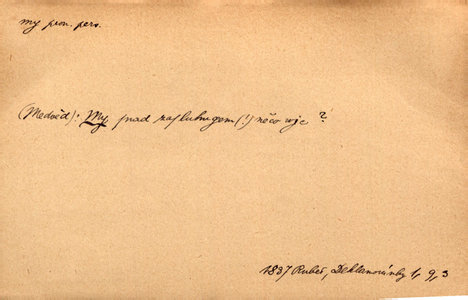 my pron. pers.
(Medvěd): My snad zasluhugem (!) něco wjc?
1837 Rubeš, Deklamovánky 1, 9, 3